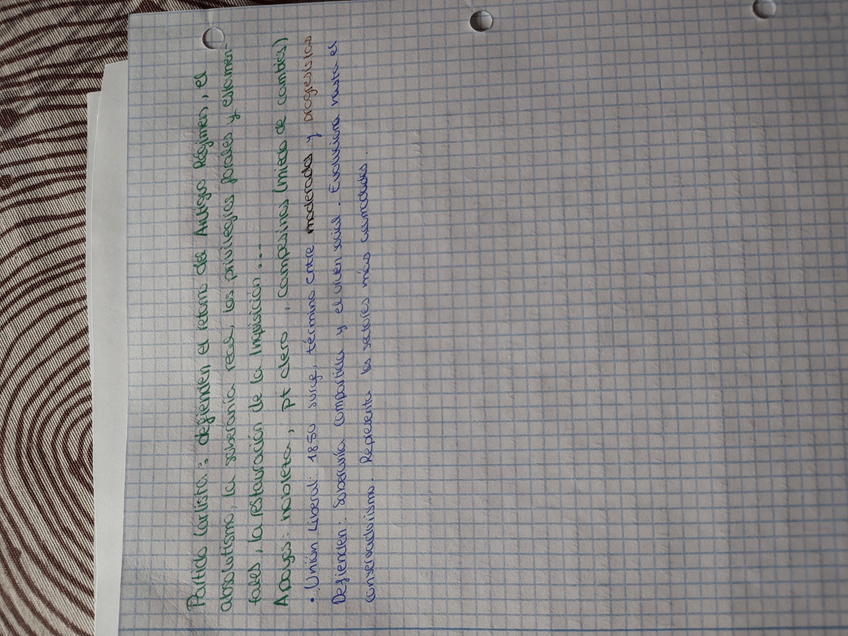 Partido Carlista: defienden el retorno del Antiguo Régimen, el
absolutismo, la soberanía real, los privilegios forales y estamen-
tales, la restauración de la Inquisición...
Apoyos: nobleza, pt clero, campesinos (miedo de cambios)
• Unión Liberal 1850 surge, término entre moderados y progresistas
Defienden: Soberanía compartida y el orden social. Evoluciona hasta el
conservadurismo. Representa los sectores más acomodados.